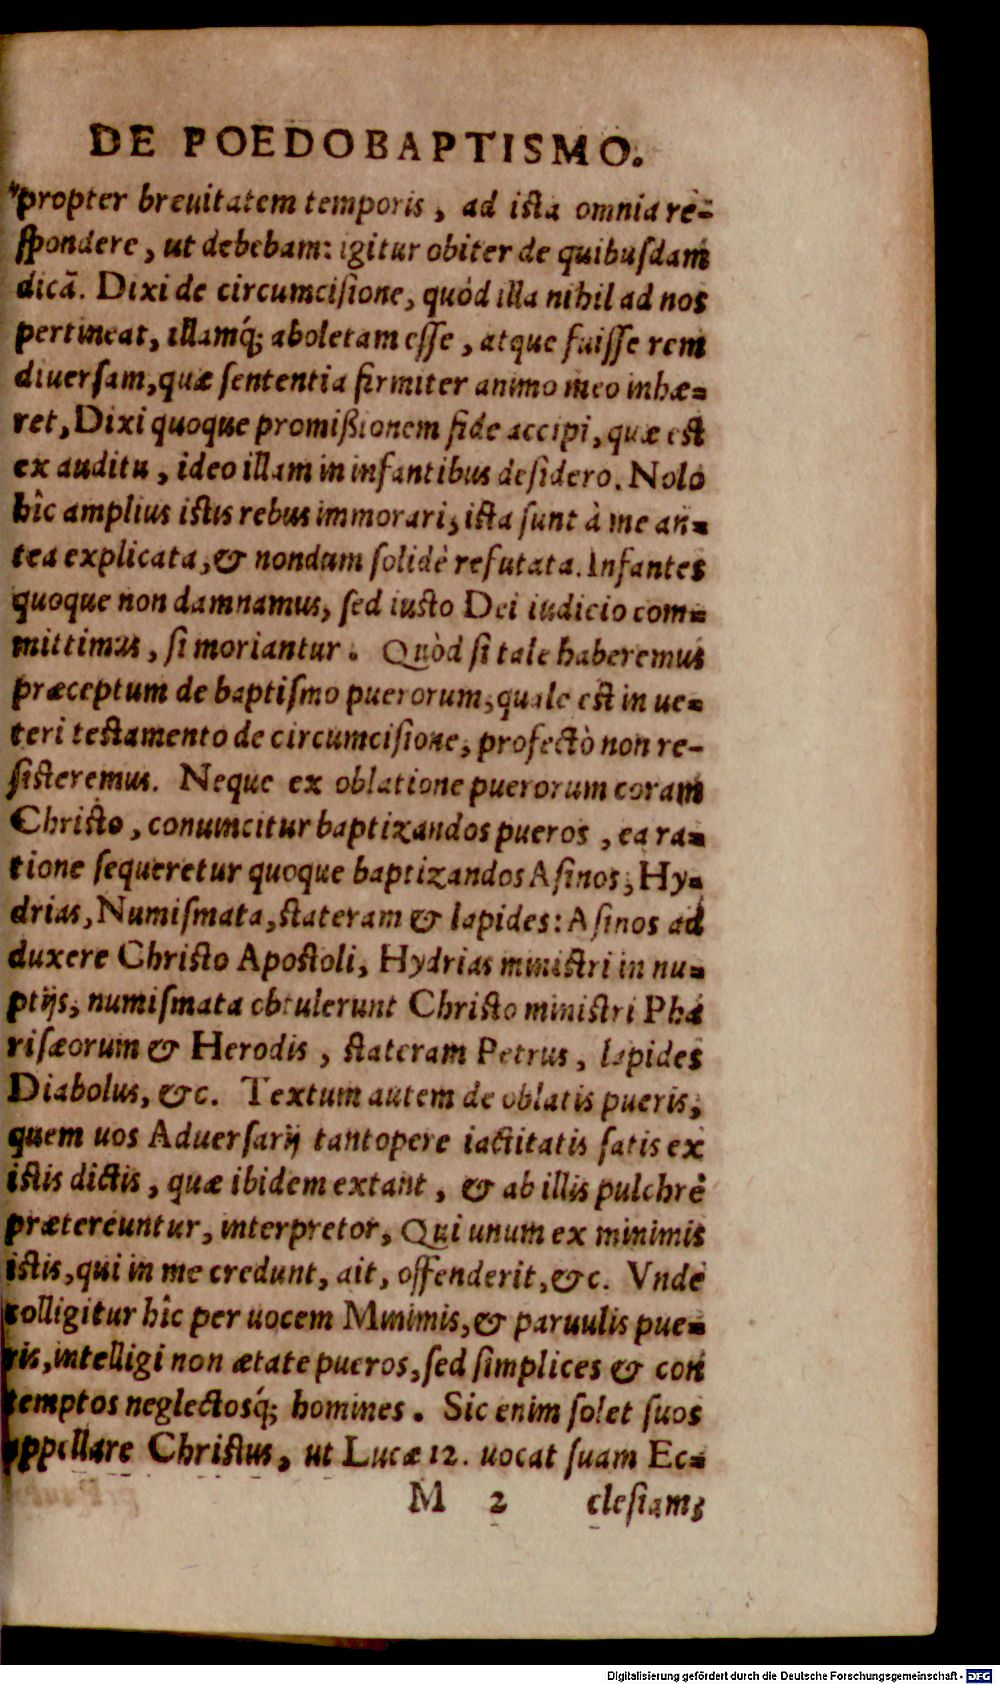 DE POEDOBAPTISMO.
propter breuitatem temporis, ad ista omnia re-
spondere, ut debebam: igitur obiter de quibusdam
dicā. Dixi de circumcisione, quòd illa nihil ad nos
pertineat, illamq́; aboletam esse, atque fuisse rem
diuersam, quæ sententia firmiter animo meo inhæ-
ret, Dixi quoque promißionem fide accipi, quæ est
ex auditu, ideo illam in infantibus desidero. Nolo
hîc amplius istis rebus immorari, ista sunt à me an-
tea explicata, & nondum solidè refutata. Infantes
quoque non damnamus, sed iusto Dei iudicio com-
mittimus, si moriantur. Quòd si tale haberemus
præceptum de baptismo puerorum, quale est in ue-
teri testamento de circumcisione, profectò non re-
sisteremus. Neque ex oblatione puerorum coram
Christo, conuincitur baptizandos pueros, ea ra-
tione sequeretur quoque baptizandos Asinos, Hy-
drias, Numismata, stateram & lapides: Asinos ad
duxere Christo Apostoli, Hydrias ministri in nu-
ptijs, numismata obtulerunt Christo ministri Pha
risæorum & Herodis, stateram Petrus, lapides
Diabolus, &c. Textum autem de oblatis pueris,
quem uos Aduersarij tantopere iactitatis satis ex
istis dictis, quæ ibidem extant, & ab illis pulchrè
prætereuntur, interpretor, Qui unum ex minimis
istis, qui in me credunt, ait, offenderit, &c. Vnde
colligitur hîc per uocem Minimis, & paruulis pue-
ris, intelligi non ætate pueros, sed simplices & con
temptos neglectosq́; homines. Sic enim solet suos
appellare Christus, ut Lucæ 12. uocat suam Ec-
M 2 clesiam,
Digitalisierung gefördert durch die Deutsche Forschungsgemeinschaft - DFG